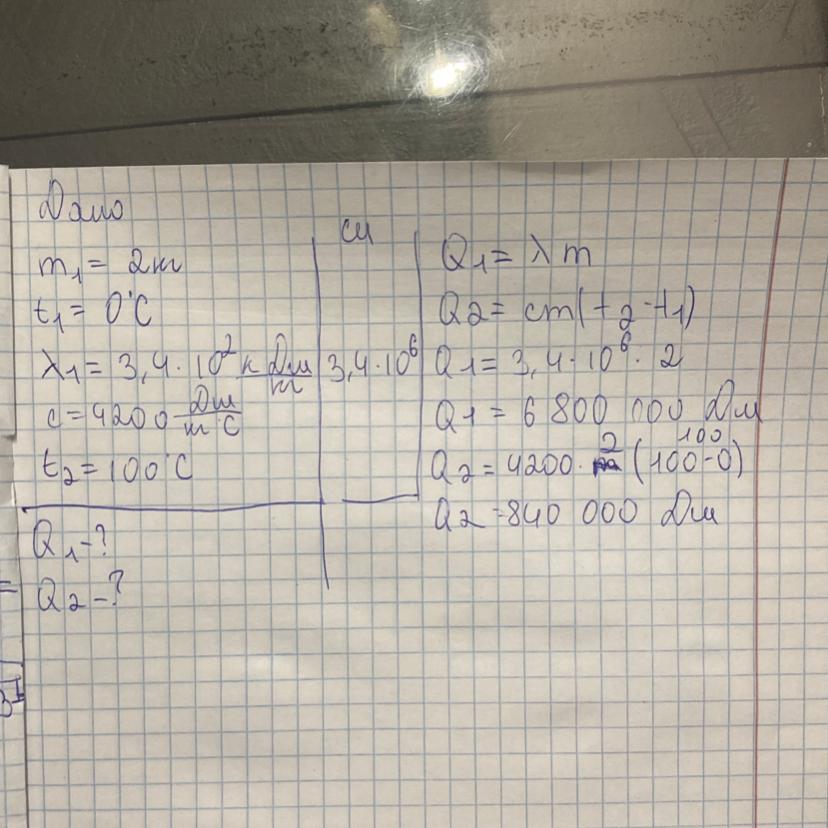 Дано
m₁ = 2 кг
t₁ = 0°C
λ₁ = 3,4 · 10² кДж/кг
c = 4200 Дж/кг°C
t₂ = 100°C
Q₁ - ?
Q₂ - ?
СИ
3,4 · 10⁶
Q₁ = λ m
Q₂ = cm(t₂ - t₁)
Q₁ = 3,4 · 10⁶ · 2
Q₁ = 6 800 000 Дж
100
Q₂ = 4200 · 2 (100 - 0)
Q₂ = 840 000 Дж